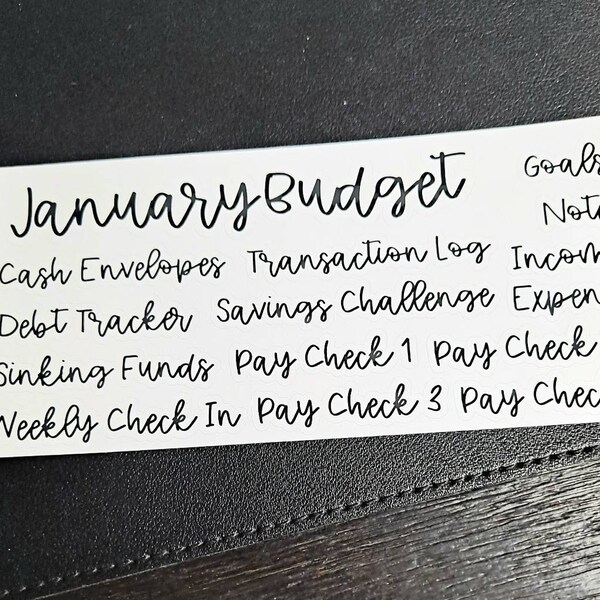 January Budget Goals
Cash Envelopes Transaction Log
Debt Tracker Savings Challenge
Sinking Funds Pay Check 1 Pay Check
Weekly Check In Pay Check 3 Pay